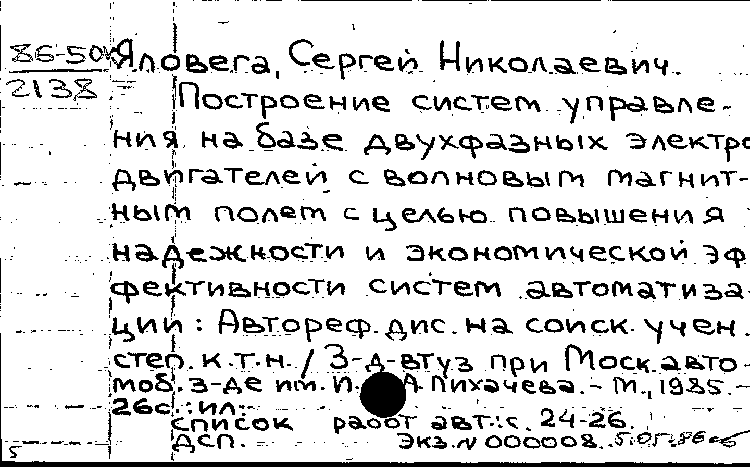 86-50 Яловега, Сергей Николаевич.
2138 Построение систем управле-
ния на базе двухфазных электро
двигателей с волновым магнит-
ным полем с целью повышения
надежности и экономической эф
фективности систем автоматиза-
ции: Автореф. дис. на соиск. учен.
степ. к.т.н. / З-д-втуз при Моск. авто-
моб. з-де им. И. А. Лихачева. - М., 1985. -
26с.: ил.
Список работ авт.: с. 24-26.
ДСП. Экз. N 000008.
5